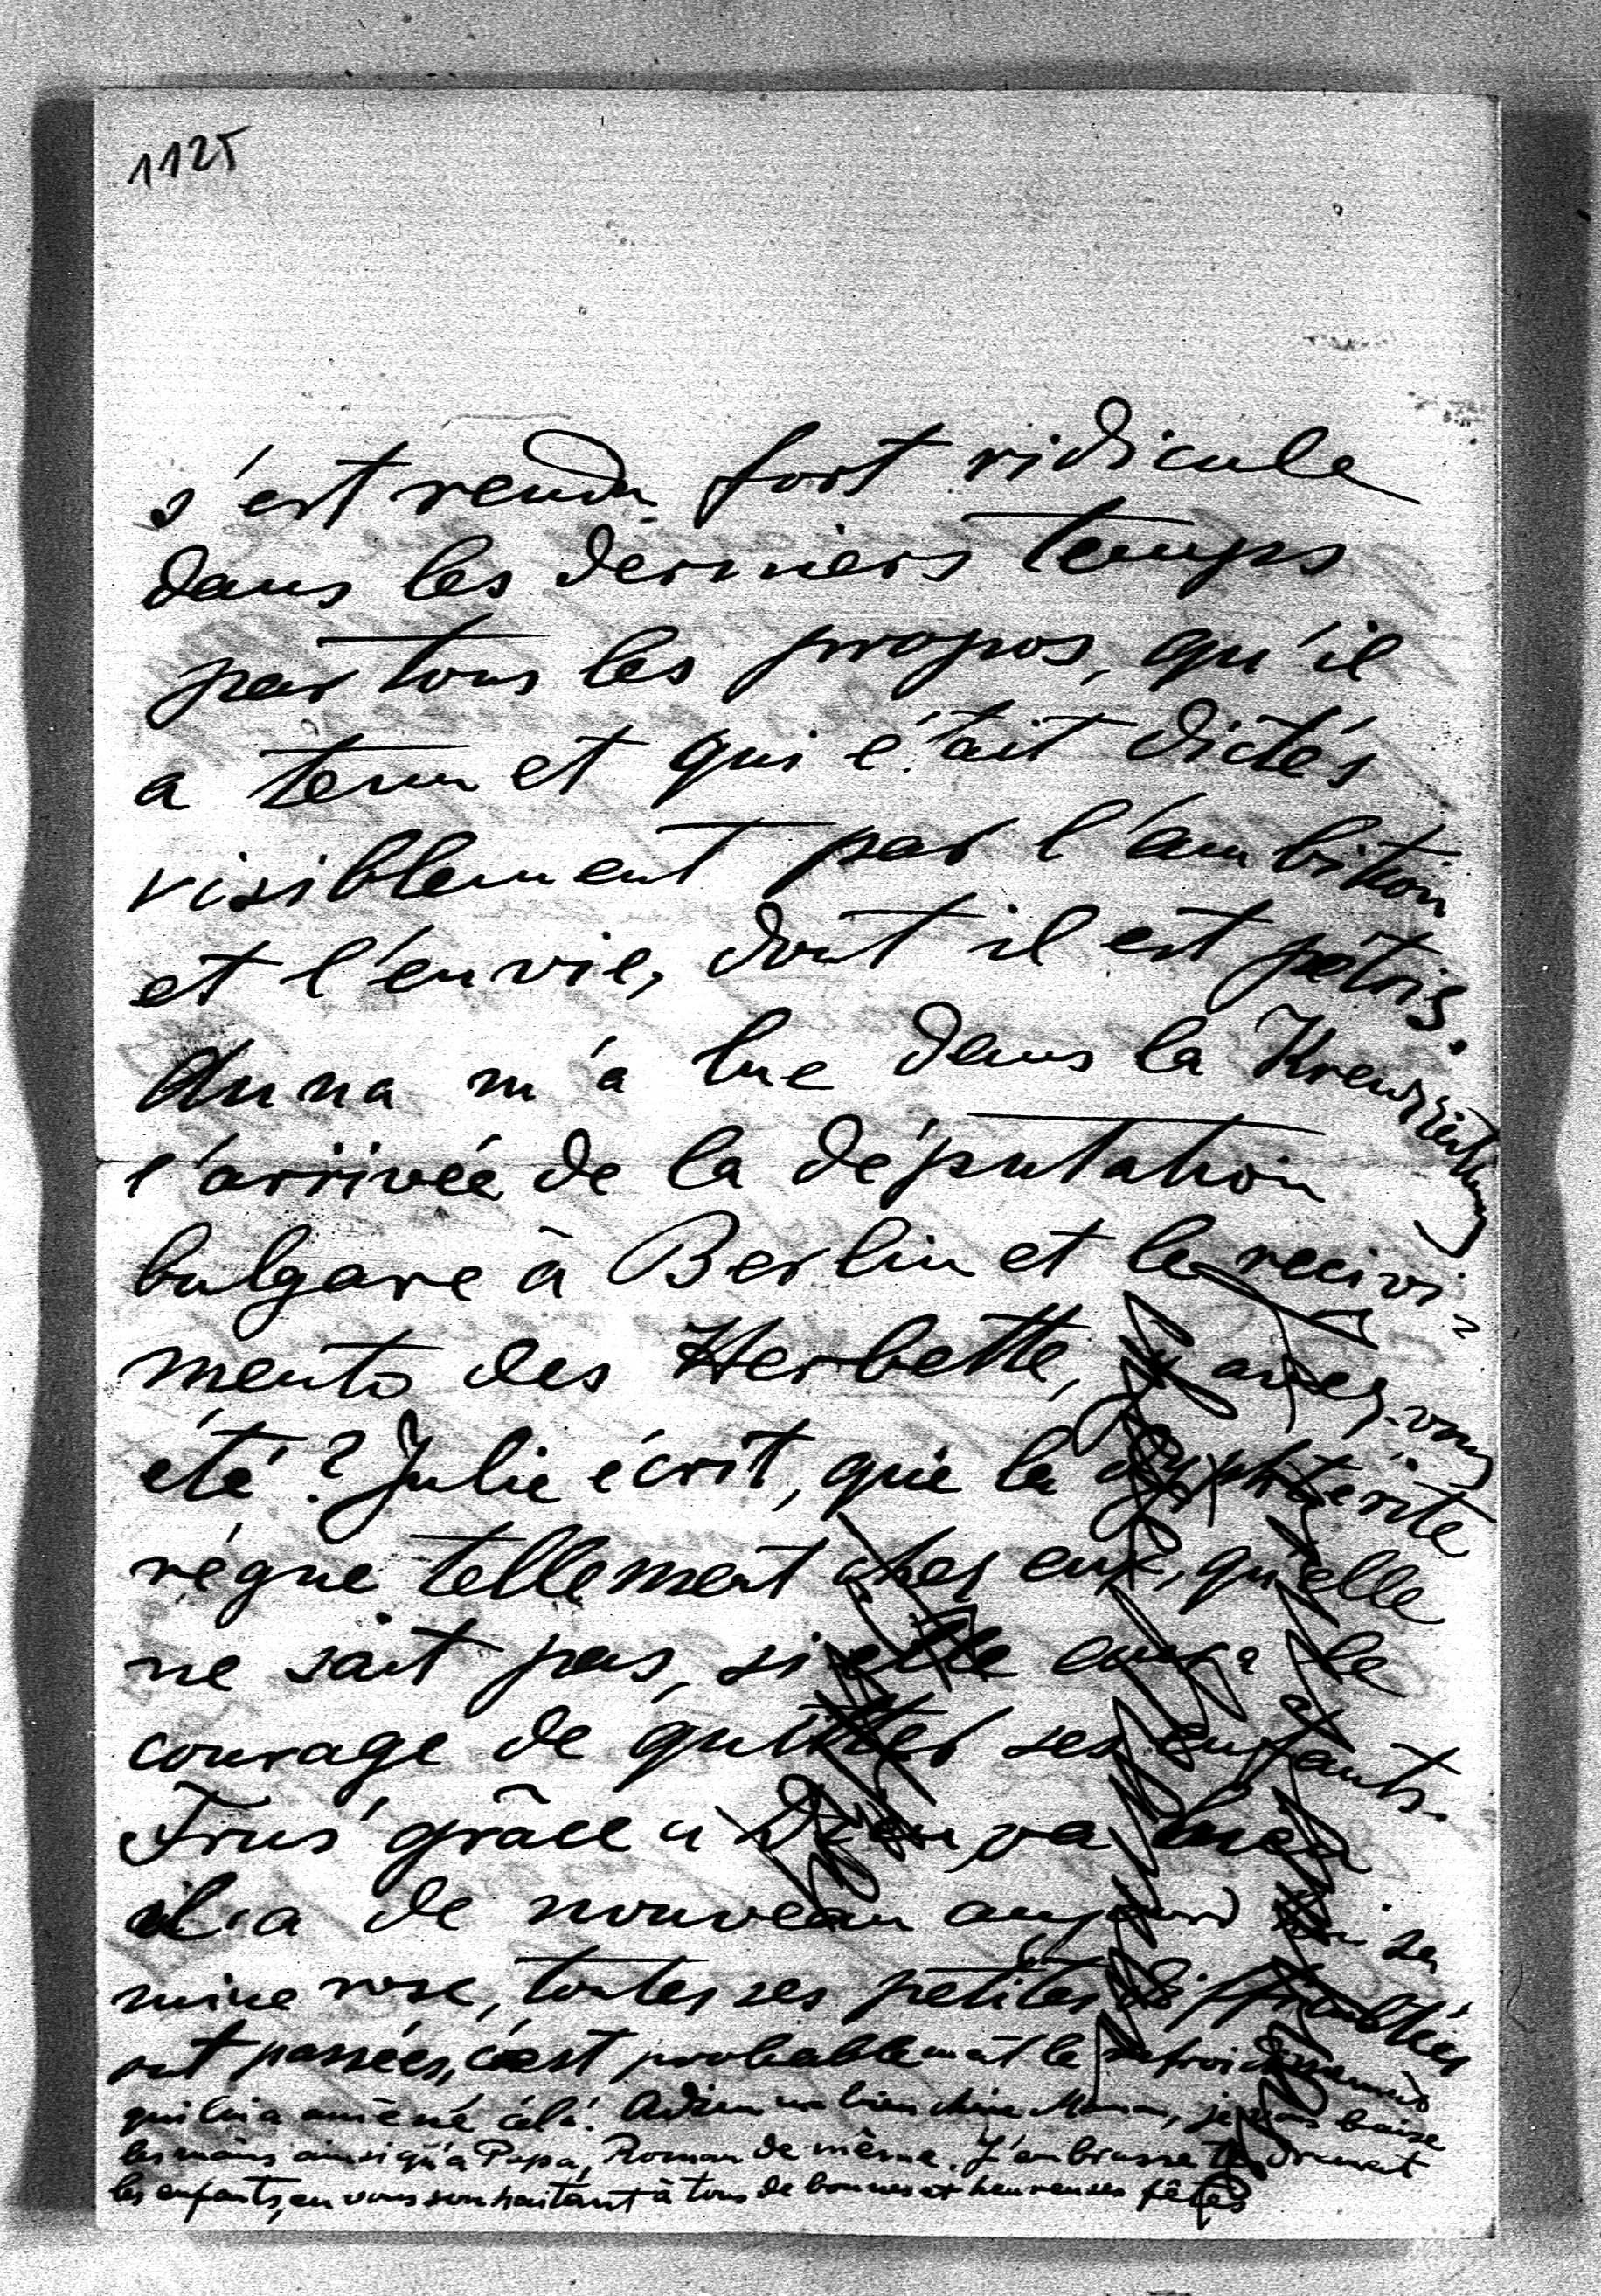 1125
s'est rendu fort ridicule
dans les derniers temps
par tous les propos, qu'il
a tenu et qui était dictés
visiblement par l'ambition
et l'envie, dont il est pétris.
Anna m'a lue dans la Kreuzzeitung
l'arrivée de la députation
bulgare à Berlin et le recivi-
mento des Herbette, y avez-vous
été? Julie écrit, que la dyphtérite
règne tellement chez eux, qu'elle
ne sait pas, si elle aura le
courage de quitter ses enfants.
Truś grâce à Dieu va bien
il a de nouveau aujourd'hui sa
mine rose, toutes ses petites difficultés
ont passées, c'est probablement le refroidissement
qui lui a amené celà. Adieu ma bien chère Maman, je vous baise
les mains ainsi qu'à Papa, Roman de même. J'embrasse tendrement
les enfants, en vous souhaitant à tous de bonnes et heureuses fêtes